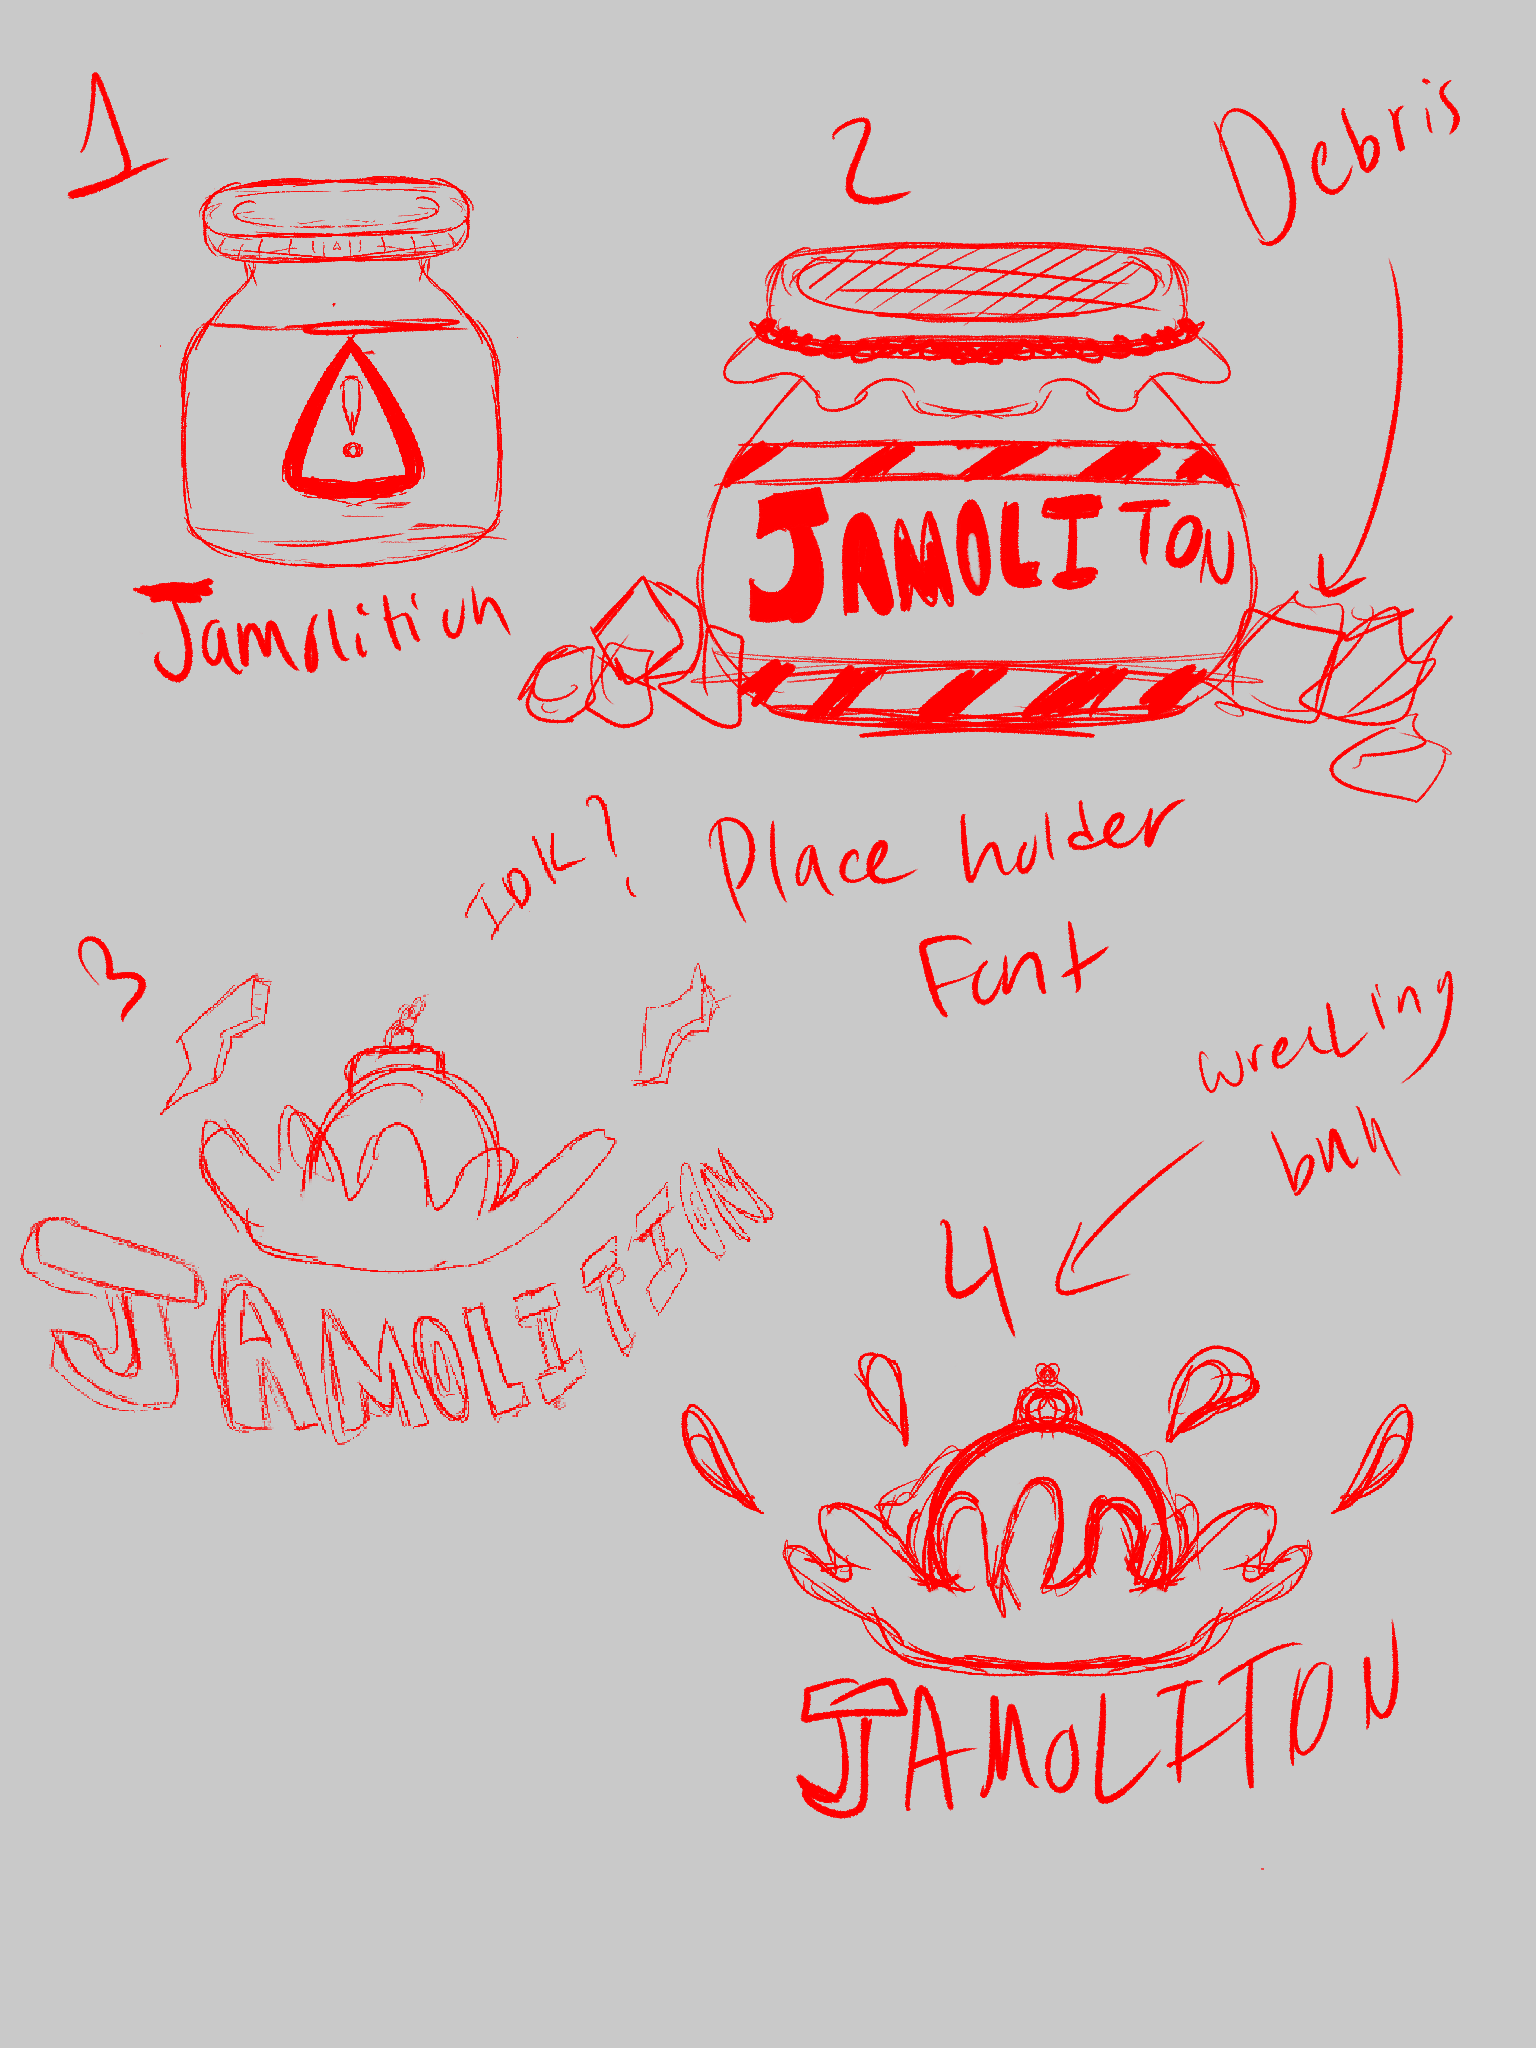 1
2
Debris
!
Jamolition
JAMOLITON
IDK?
Place holder
Font
3
JAMOLITION
wrecking
ball
4
JAMOLITON